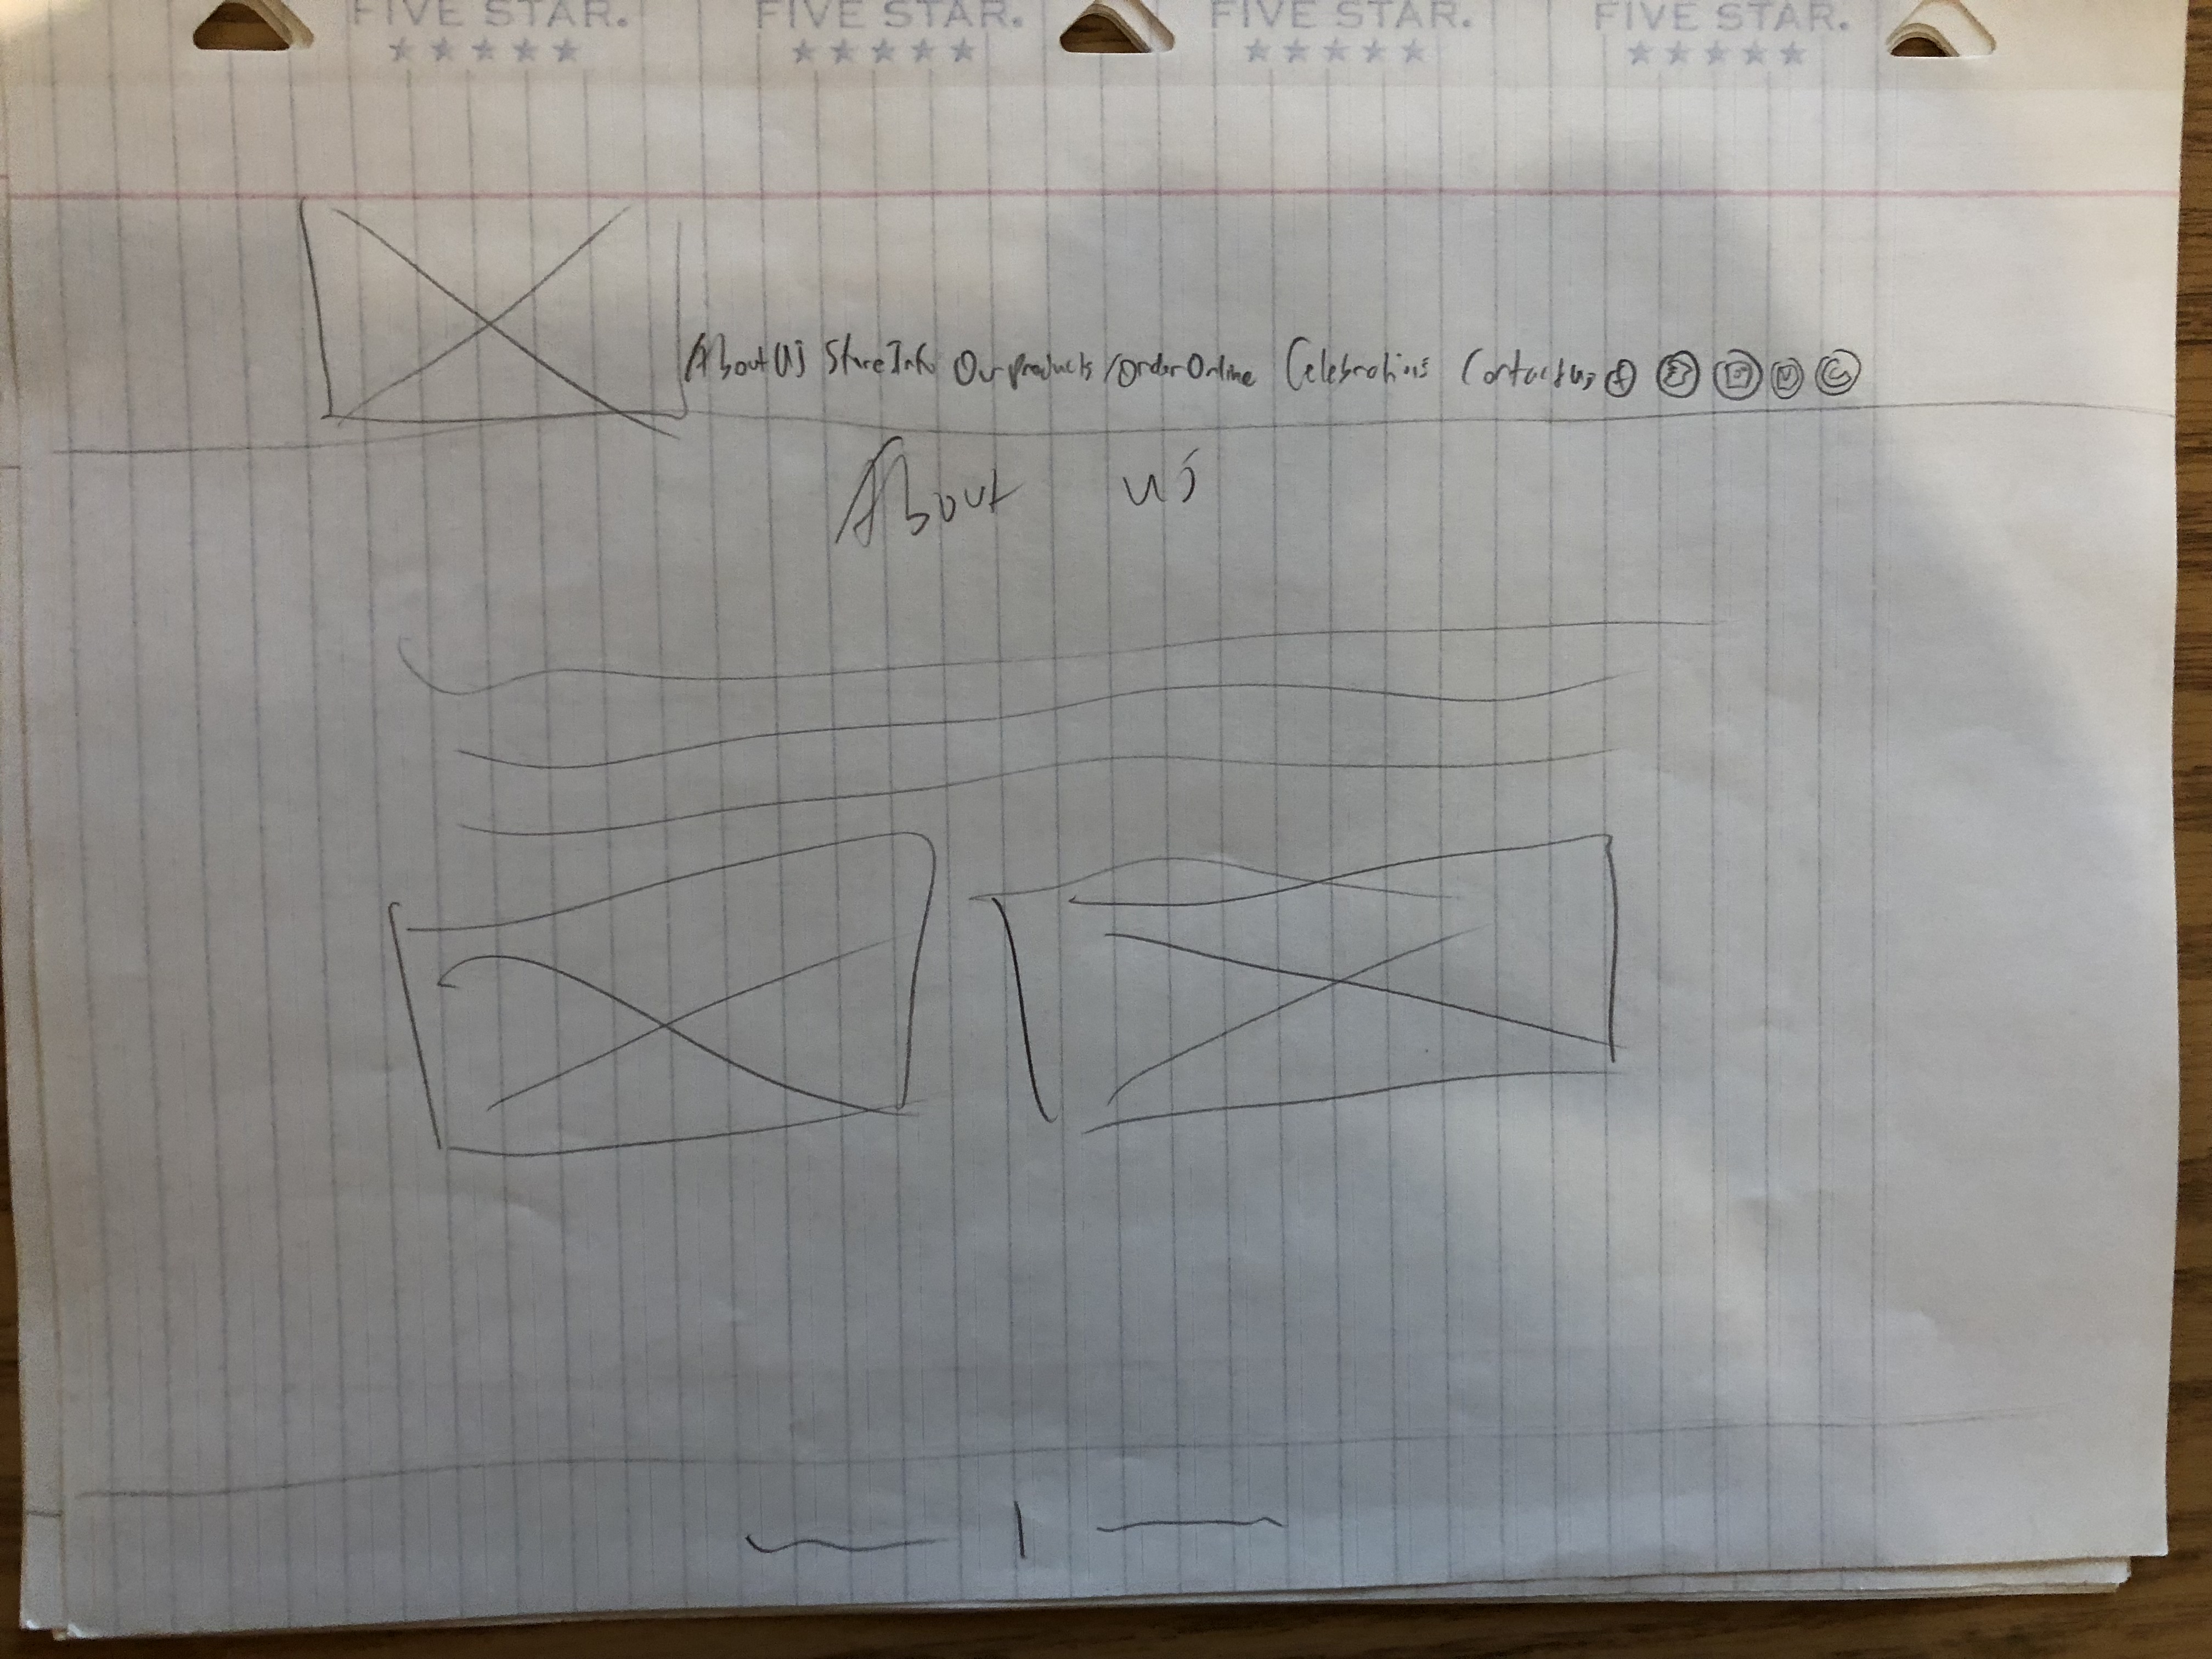 FIVE STAR. FIVE STAR. FIVE STAR. FIVE STAR.
★★★★★ ★★★★★ ★★★★★ ★★★★★
About Us Store Info Our products/Order Online Celebrations Contact Us
About us